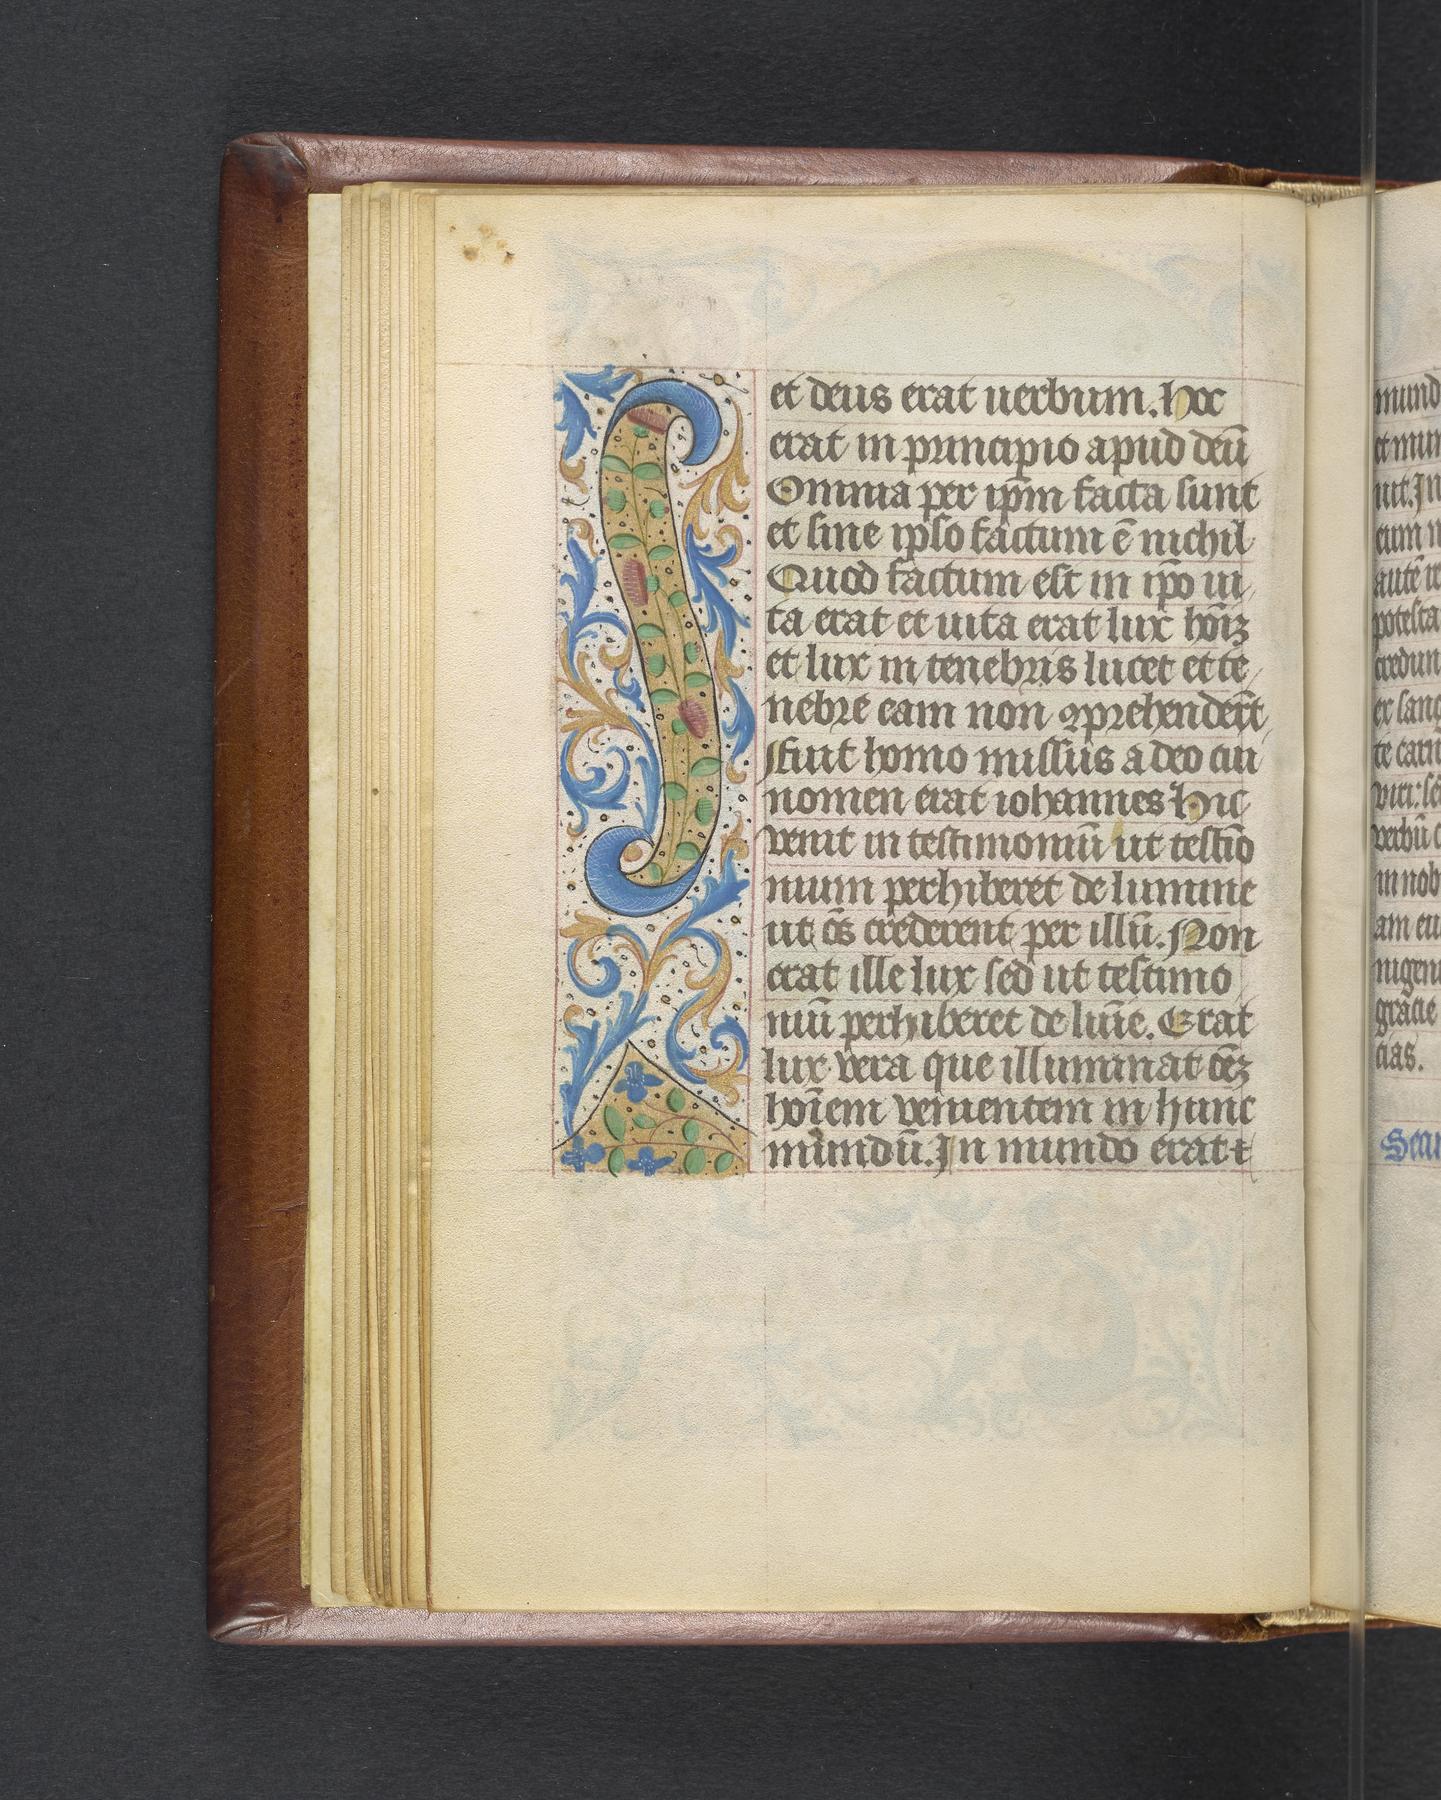 et deus erat uerbum. Hoc
erat in principio apud deū
Omnia per ip̄m facta sunt
et sine ipso factum ē nichil
Quod factum est in ip̄o ui
ta erat et uita erat lux hōīꝫ
et lux in tenebris lucet et te
nebre eam non ꝯprehenderūt
Fuit homo missus a deo cui
nomen erat iohannes Hic
venit in testimoniū ut testīo
nium perhiberet de lumine
ut oēs crederent per illū. Non
erat ille lux sed ut testimo
niū perhiberet de lūīe. Erat
lux vera que illuminat oēꝫ
hoīem venientem in hunc
mundū. In mundo erat ⁊
mund
et mun
uit. In
eum n
aute re
potesta
credun
ex sang
te carn
viri: se
verbū c
in nob
am eu
nigeni
gracie
cias.